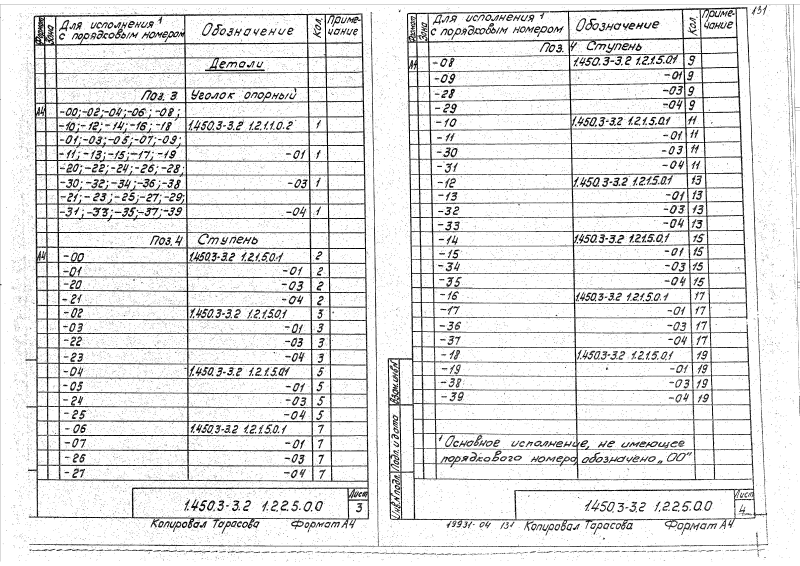 Формат Зона Для исполнения¹ с порядковым номером Обозначение Кол. Приме-чание
Детали
Поз. 3 Уголок опорный
А4 -00; -02; -04; -06; -08;
-10; -12; -14; -16; -18 1.450.3-3.2 1.2.1.1.0.2 1
-01; -03; -05; -07; -09;
-11; -13; -15; -17; -19 -01 1
-20; -22; -24; -26; -28;
-30; -32; -34; -36; -38 -03 1
-21; -23; -25; -27; -29;
-31; -33; -35; -37; -39 -04 1
Поз. 4 Ступень
А4 -00 1.450.3-3.2 1.2.1.5.0.1 2
-01 -01 2
-20 -03 2
-21 -04 2
-02 1.450.3-3.2 1.2.1.5.0.1 3
-03 -01 3
-22 -03 3
-23 -04 3
-04 1.450.3-3.2 1.2.1.5.0.1 5
-05 -01 5
-24 -03 5
-25 -04 5
-06 1.450.3-3.2 1.2.1.5.0.1 7
-07 -01 7
-26 -03 7
-27 -04 7
1.450.3-3.2 1.2.2.5.0.0 Лист 3
Копировал Тарасова Формат А4
131
Формат Зона Для исполнения¹ с порядковым номером Обозначение Кол. Приме-чание
Поз. 4 Ступень
А4 -08 1.450.3-3.2 1.2.1.5.0.1 9
-09 -01 9
-28 -03 9
-29 -04 9
-10 1.450.3-3.2 1.2.1.5.0.1 11
-11 -01 11
-30 -03 11
-31 -04 11
-12 1.450.3-3.2 1.2.1.5.0.1 13
-13 -01 13
-32 -03 13
-33 -04 13
-14 1.450.3-3.2 1.2.1.5.0.1 15
-15 -01 15
-34 -03 15
-35 -04 15
-16 1.450.3-3.2 1.2.1.5.0.1 17
-17 -01 17
-36 -03 17
-37 -04 17
-18 1.450.3-3.2 1.2.1.5.0.1 19
-19 -01 19
-38 -03 19
-39 -04 19
¹ Основное исполнение, не имеющее
порядкового номера, обозначено „00"
Взам.инв.№
Подп. и дата
Инв.№ подл.
1.450.3-3.2 1.2.2.5.0.0 Лист 4
19931-04 131 Копировал Тарасова Формат А4